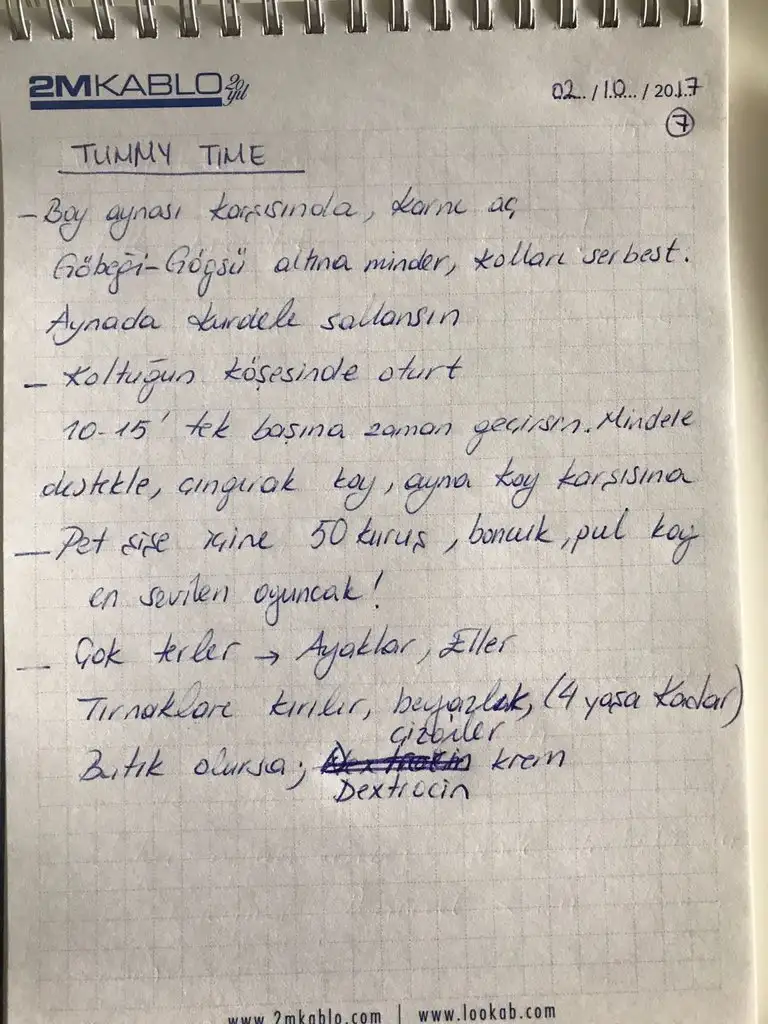 2MKABLO 20. yıl
02../10.../2017
7
TUMMY TIME
- Boy aynası karşısında, karnı aç
Göbeği-Göğsü altına minder, kolları serbest.
Aynada kurdele sallansın
- Koltuğun köşesinde oturt
10-15' tek başına zaman geçirsin. Minderle
destekle, çıngırak koy, ayna koy karşısına
- Pet şişe içine 50 kuruş, boncuk, pul koy
en sevilen oyuncak!
- Çok terler → Ayaklar, Eller
Tırnakları kırılır, beyazlık, (4 yaşa kadar)
çizgiler
Batık olursa; krem
Dextrocin
www.2mkablo.com | www.lookab.com